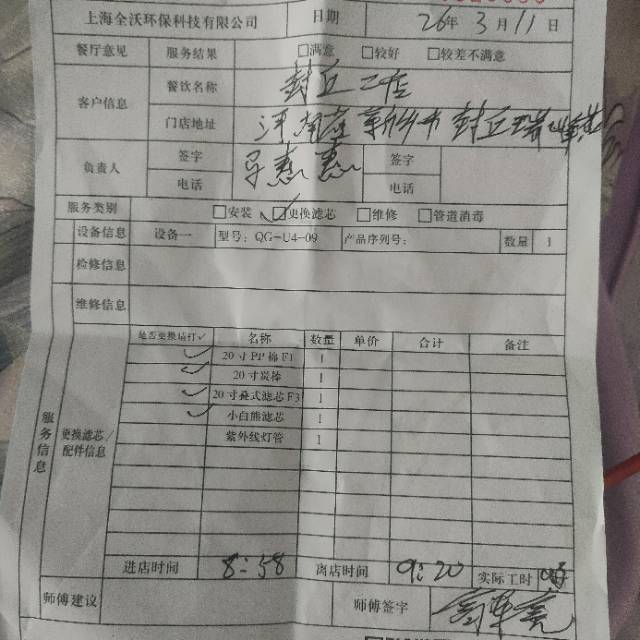 上海全沃环保科技有限公司 日期 26年 3月11日
餐厅意见 服务结果 □满意 □较好 □较差不满意
客户信息 餐饮名称 封丘
门店地址 河南省新乡市封丘
负责人 签字 签字
电话 电话
服务类别 □安装 □更换滤芯 □维修 □管道消毒
设备信息 设备一 型号: QG-U4-09 产品序列号: 数量 1
检修信息
维修信息
服务信息
更换滤芯/配件信息
是否更换请打✓ 名称 数量 单价 合计 备注
✓ 20寸PP棉F1 1
✓ 20寸炭棒 1
✓ 20寸叠式滤芯F3 1
✓ 小白熊滤芯 1
紫外线灯管 1
进店时间 8:58 离店时间 9:20 实际工时
师傅建议 师傅签字